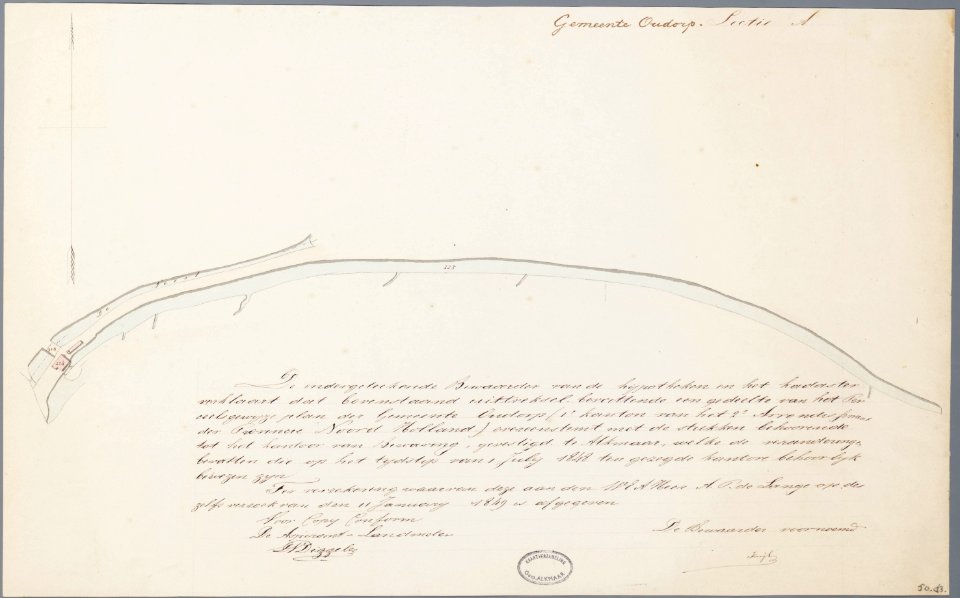 Gemeente Oudorp. Sectie A
De ondergeteekende Bewaarder van de hypotheken en het kadaster
verklaart dat bovenstaand uittreksel bevattende een gedeelte van het Per
ceelsgewijze plan der Gemeente Oudorp (1e kanton van het 2e Arrondissement
der Provincie Noord Holland) overeenstemt met de stukken behoorende
tot het kantoor van Bewaring, gevestigd te Alkmaar, welke de veranderingen
bevatten die op het tijdstip van 1 July 1848 ten gezegde kantore behoorlijk
bewezen zijn
Ter verzekering waarvan deze aan den WEd Heer A. P. de Lange op des
zelfs verzoek van den 11 January 1849 is afgegeven
Voor Copy Conform
De Landmeter
De Bewaarder voornoemd
KAARTVERZAMELING
ALKMAAR